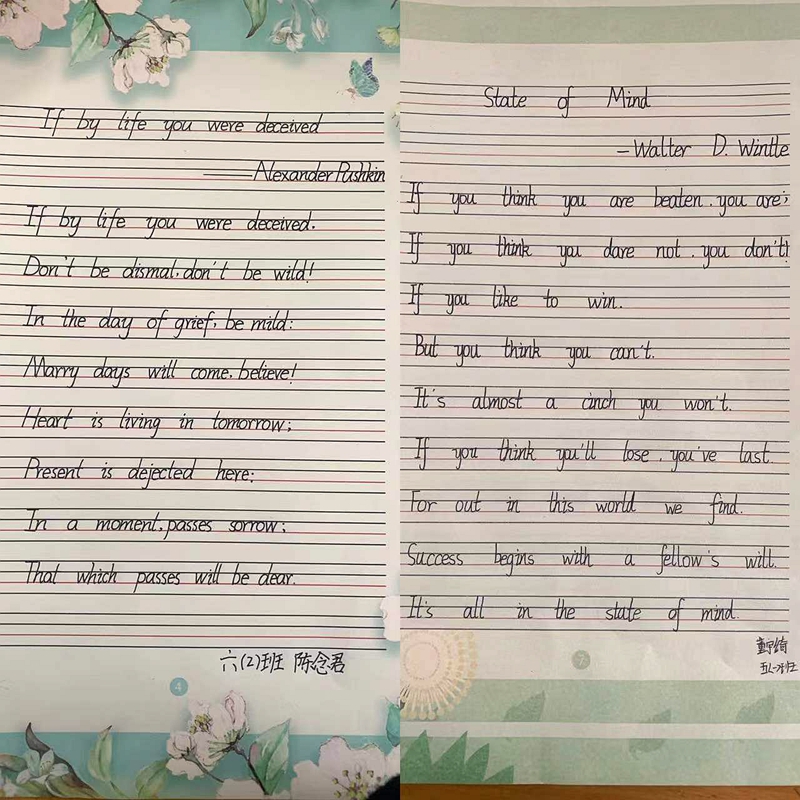 If by life you were deceived
——Alexander Pushkin
If by life you were deceived.
Don't be dismal, don't be wild!
In the day of grief, be mild:
Marry days will come, believe!
Heart is living in tomorrow;
Present is dejected here;
In a moment, passes sorrow;
That which passes will be dear.
六(2)班 陈念君
4
State of Mind
-Walter D. Wintle
If you think you are beaten, you are;
If you think you dare not, you don't!
If you like to win.
But you think you can't.
It's almost a cinch you won't.
If you think you'll lose, you've last.
For out in this world we find.
Success begins with a fellow's will.
It's all in the state of mind.
7